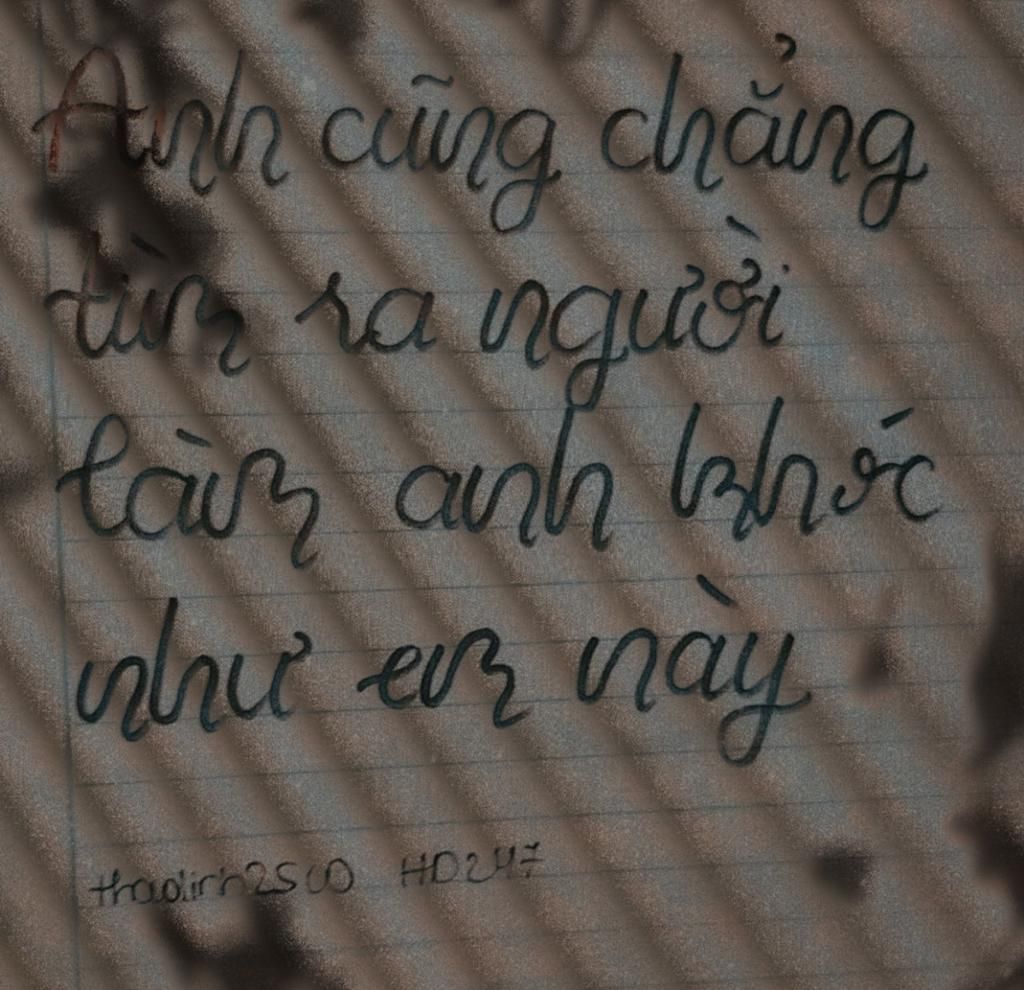 Anh cũng chẳng
tìm ra người
làm anh khóc
như em này
thaolinh2500 HD247